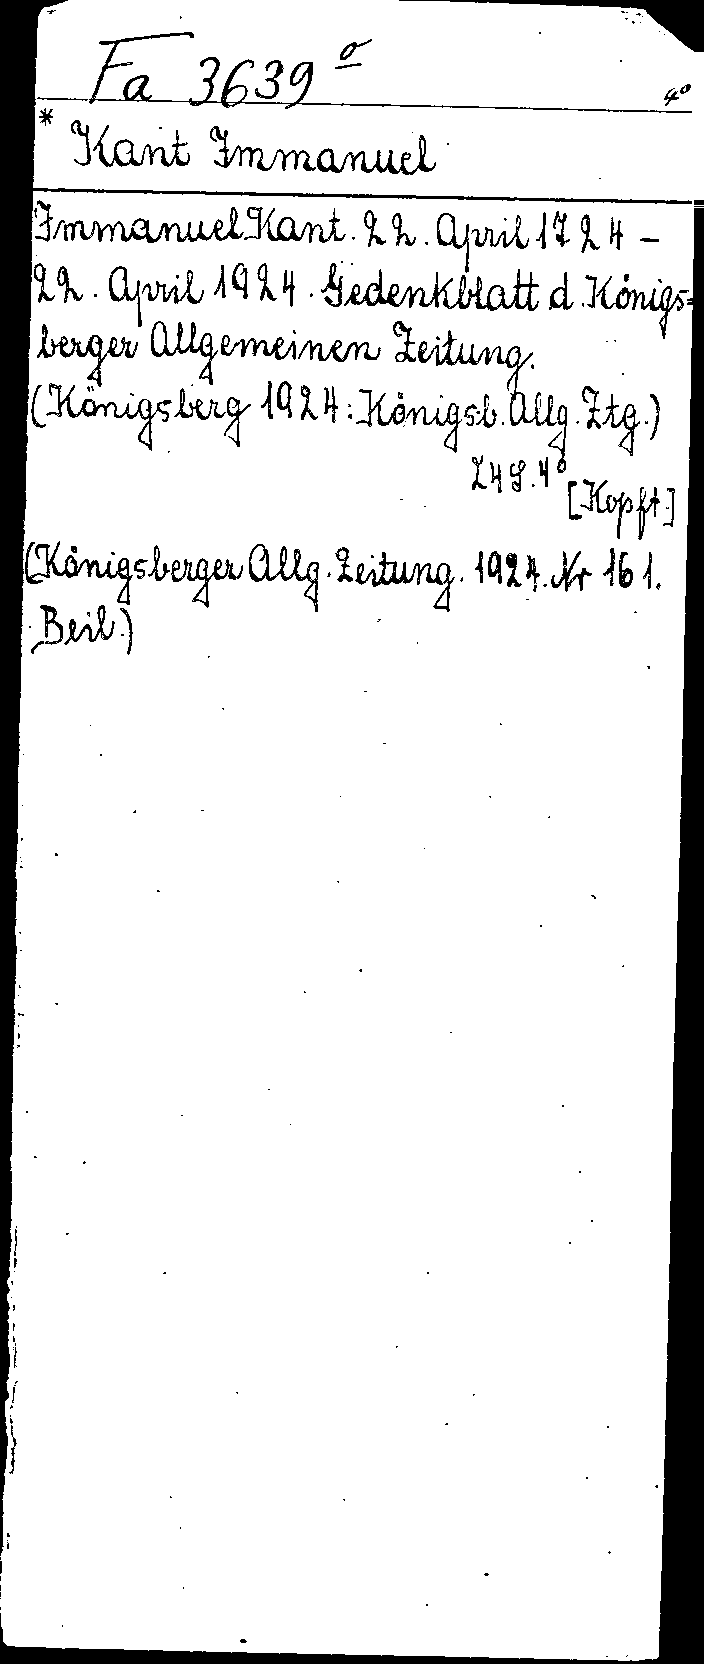 Fa 3639 o
4°
* Kant Immanuel
Immanuel Kant. 22. April 1724 –
22. April 1924. Gedenkblatt d. Königs=
berger Allgemeinen Zeitung.
(Königsberg 1924: Königsb. Allg. Ztg.)
24 S. 4°
[Kopft.]
(Königsberger Allg. Zeitung. 1924. Nr 161.
Beil.)